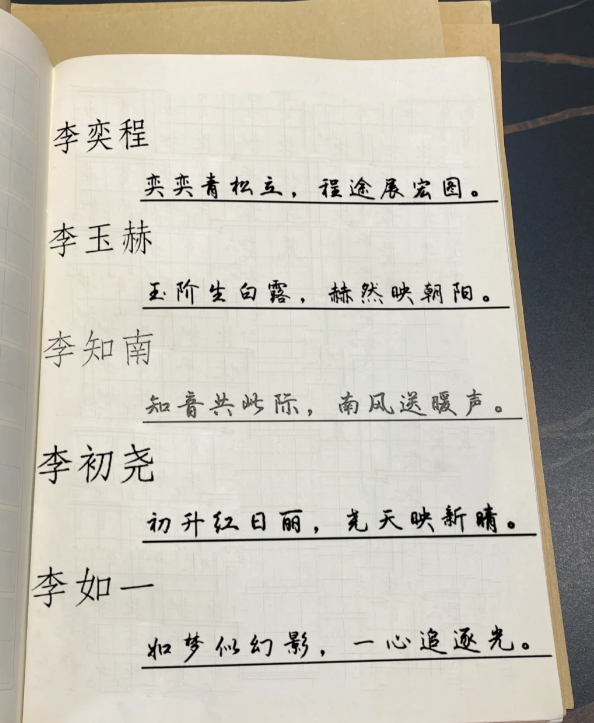 李奕程
奕奕青松立，程途展宏图。
李玉赫
玉阶生白露，赫然映朝阳。
李知南
知音共此际，南风送暖声。
李初尧
初升红日丽，尧天映新晴。
李如一
如梦似幻影，一心追逐光。